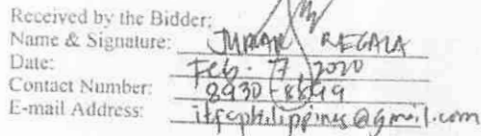 Received by the Bidder:
Name & Signature: JUMAR REGALA
Date: Feb. 7, 2020
Contact Number: 8930-8899
E-mail Address: itfcphilippines@gmail.com